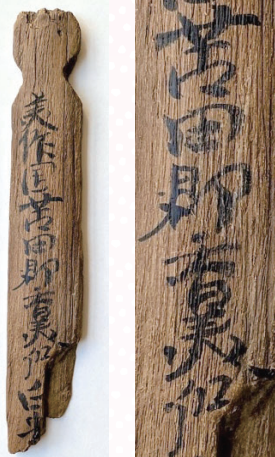 美作国苫田郡香美郷
苫田郡香美郷